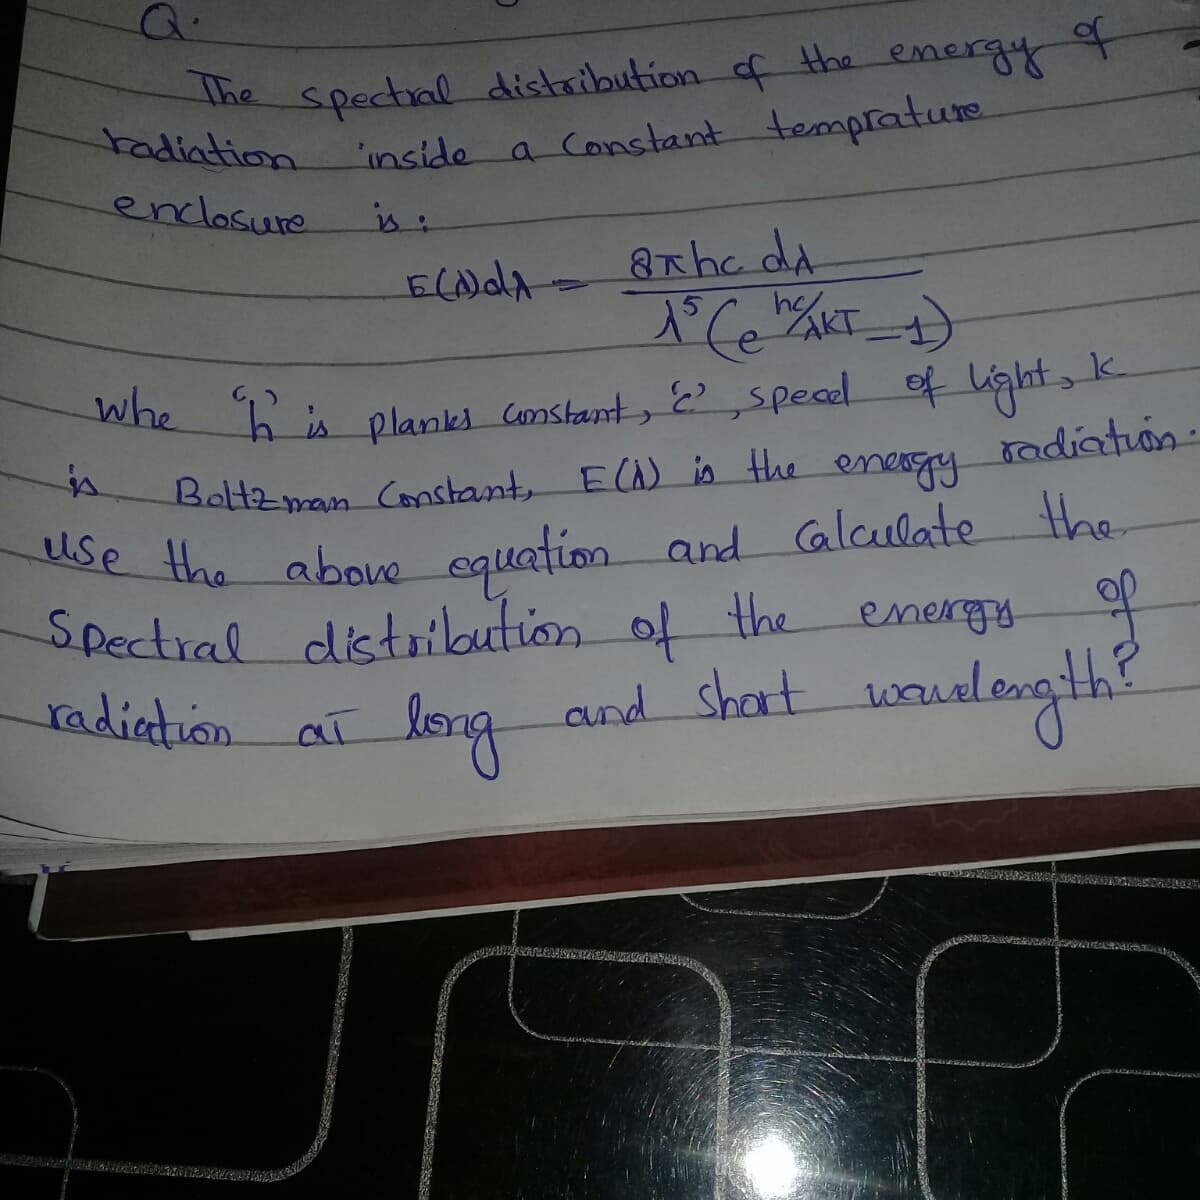 Q.
The spectral distribution of the energy of
radiation inside a Constant temprature
enclosure is :
E(λ)dλ = 8πhc dλ / λ⁵ (e^hc/λKT - 1)
whe 'h' is planks constant, 'c', speed of light, k
is Boltzman Constant, E(λ) is the energy radiation.
use the above equation and Calculate the
Spectral distribution of the energy of
radiation at long and short wavelength?